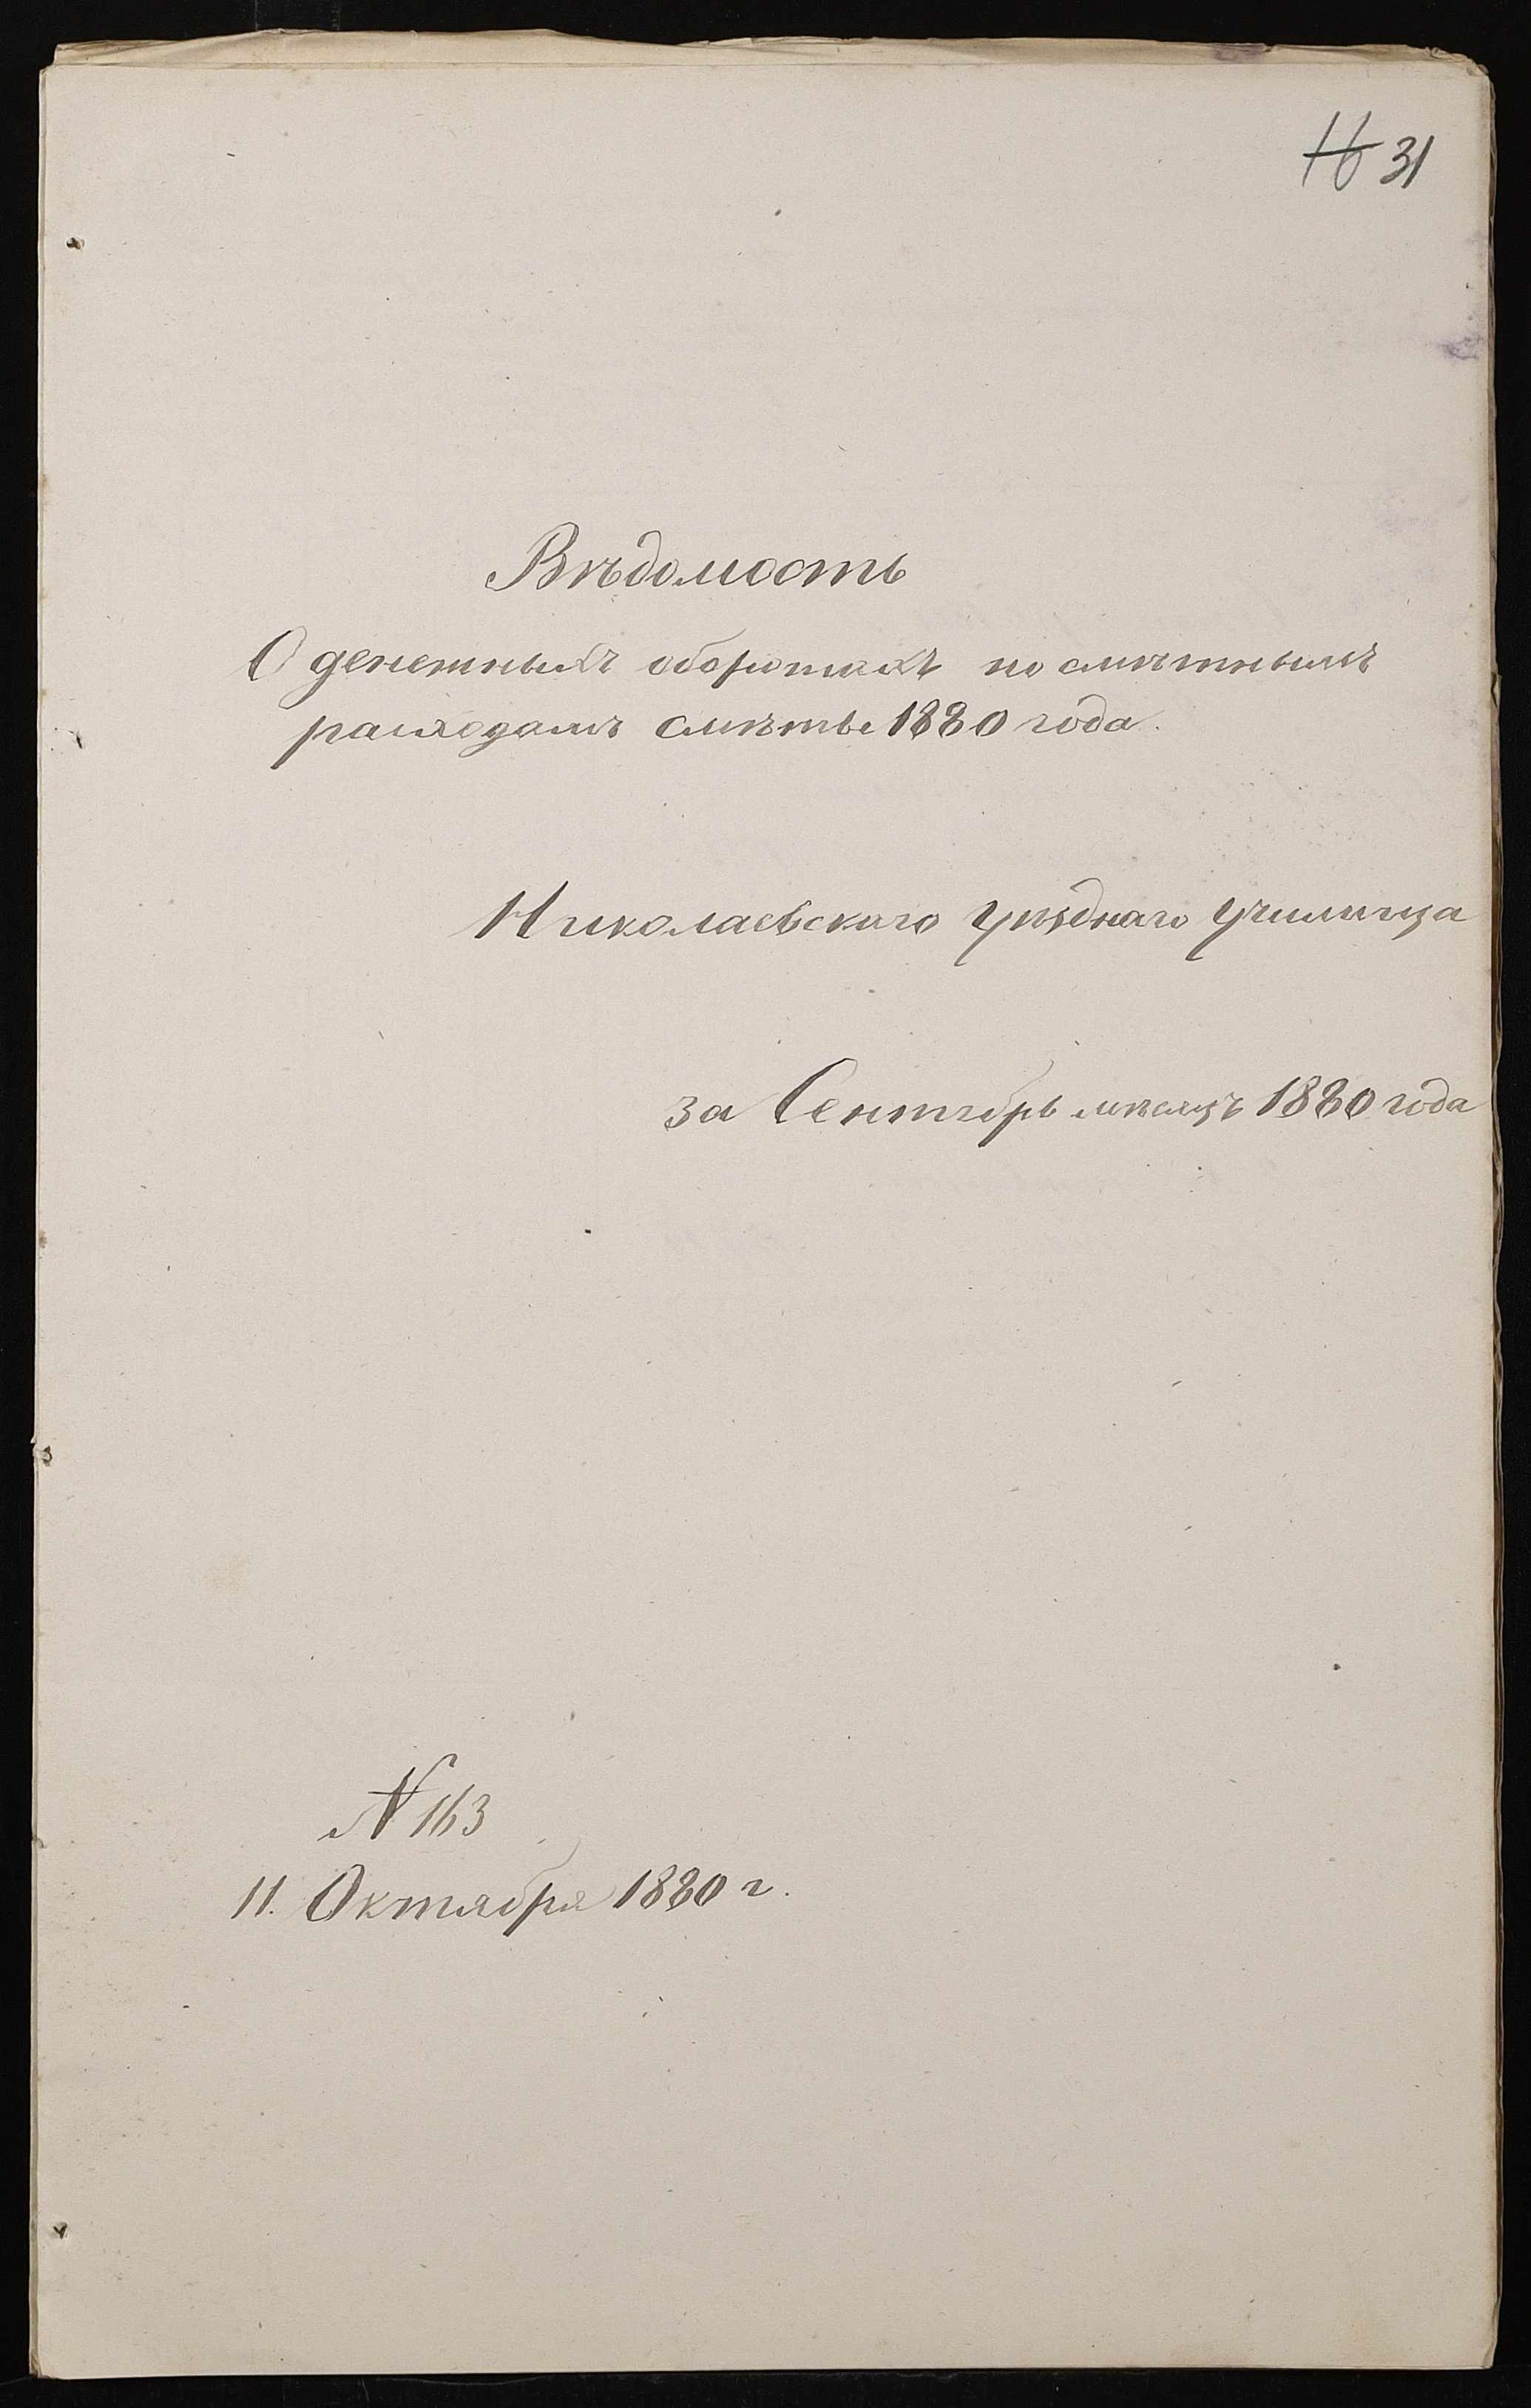 16 31
Вѣдомость
О денежныхъ оборотахъ по смѣтнымъ
расходамъ смѣты 1880 года.
Николаевскаго Уѣзднаго Училища
за Сентябрь мѣсяцъ 1880 года
N 163
11. Октября 1880 г.